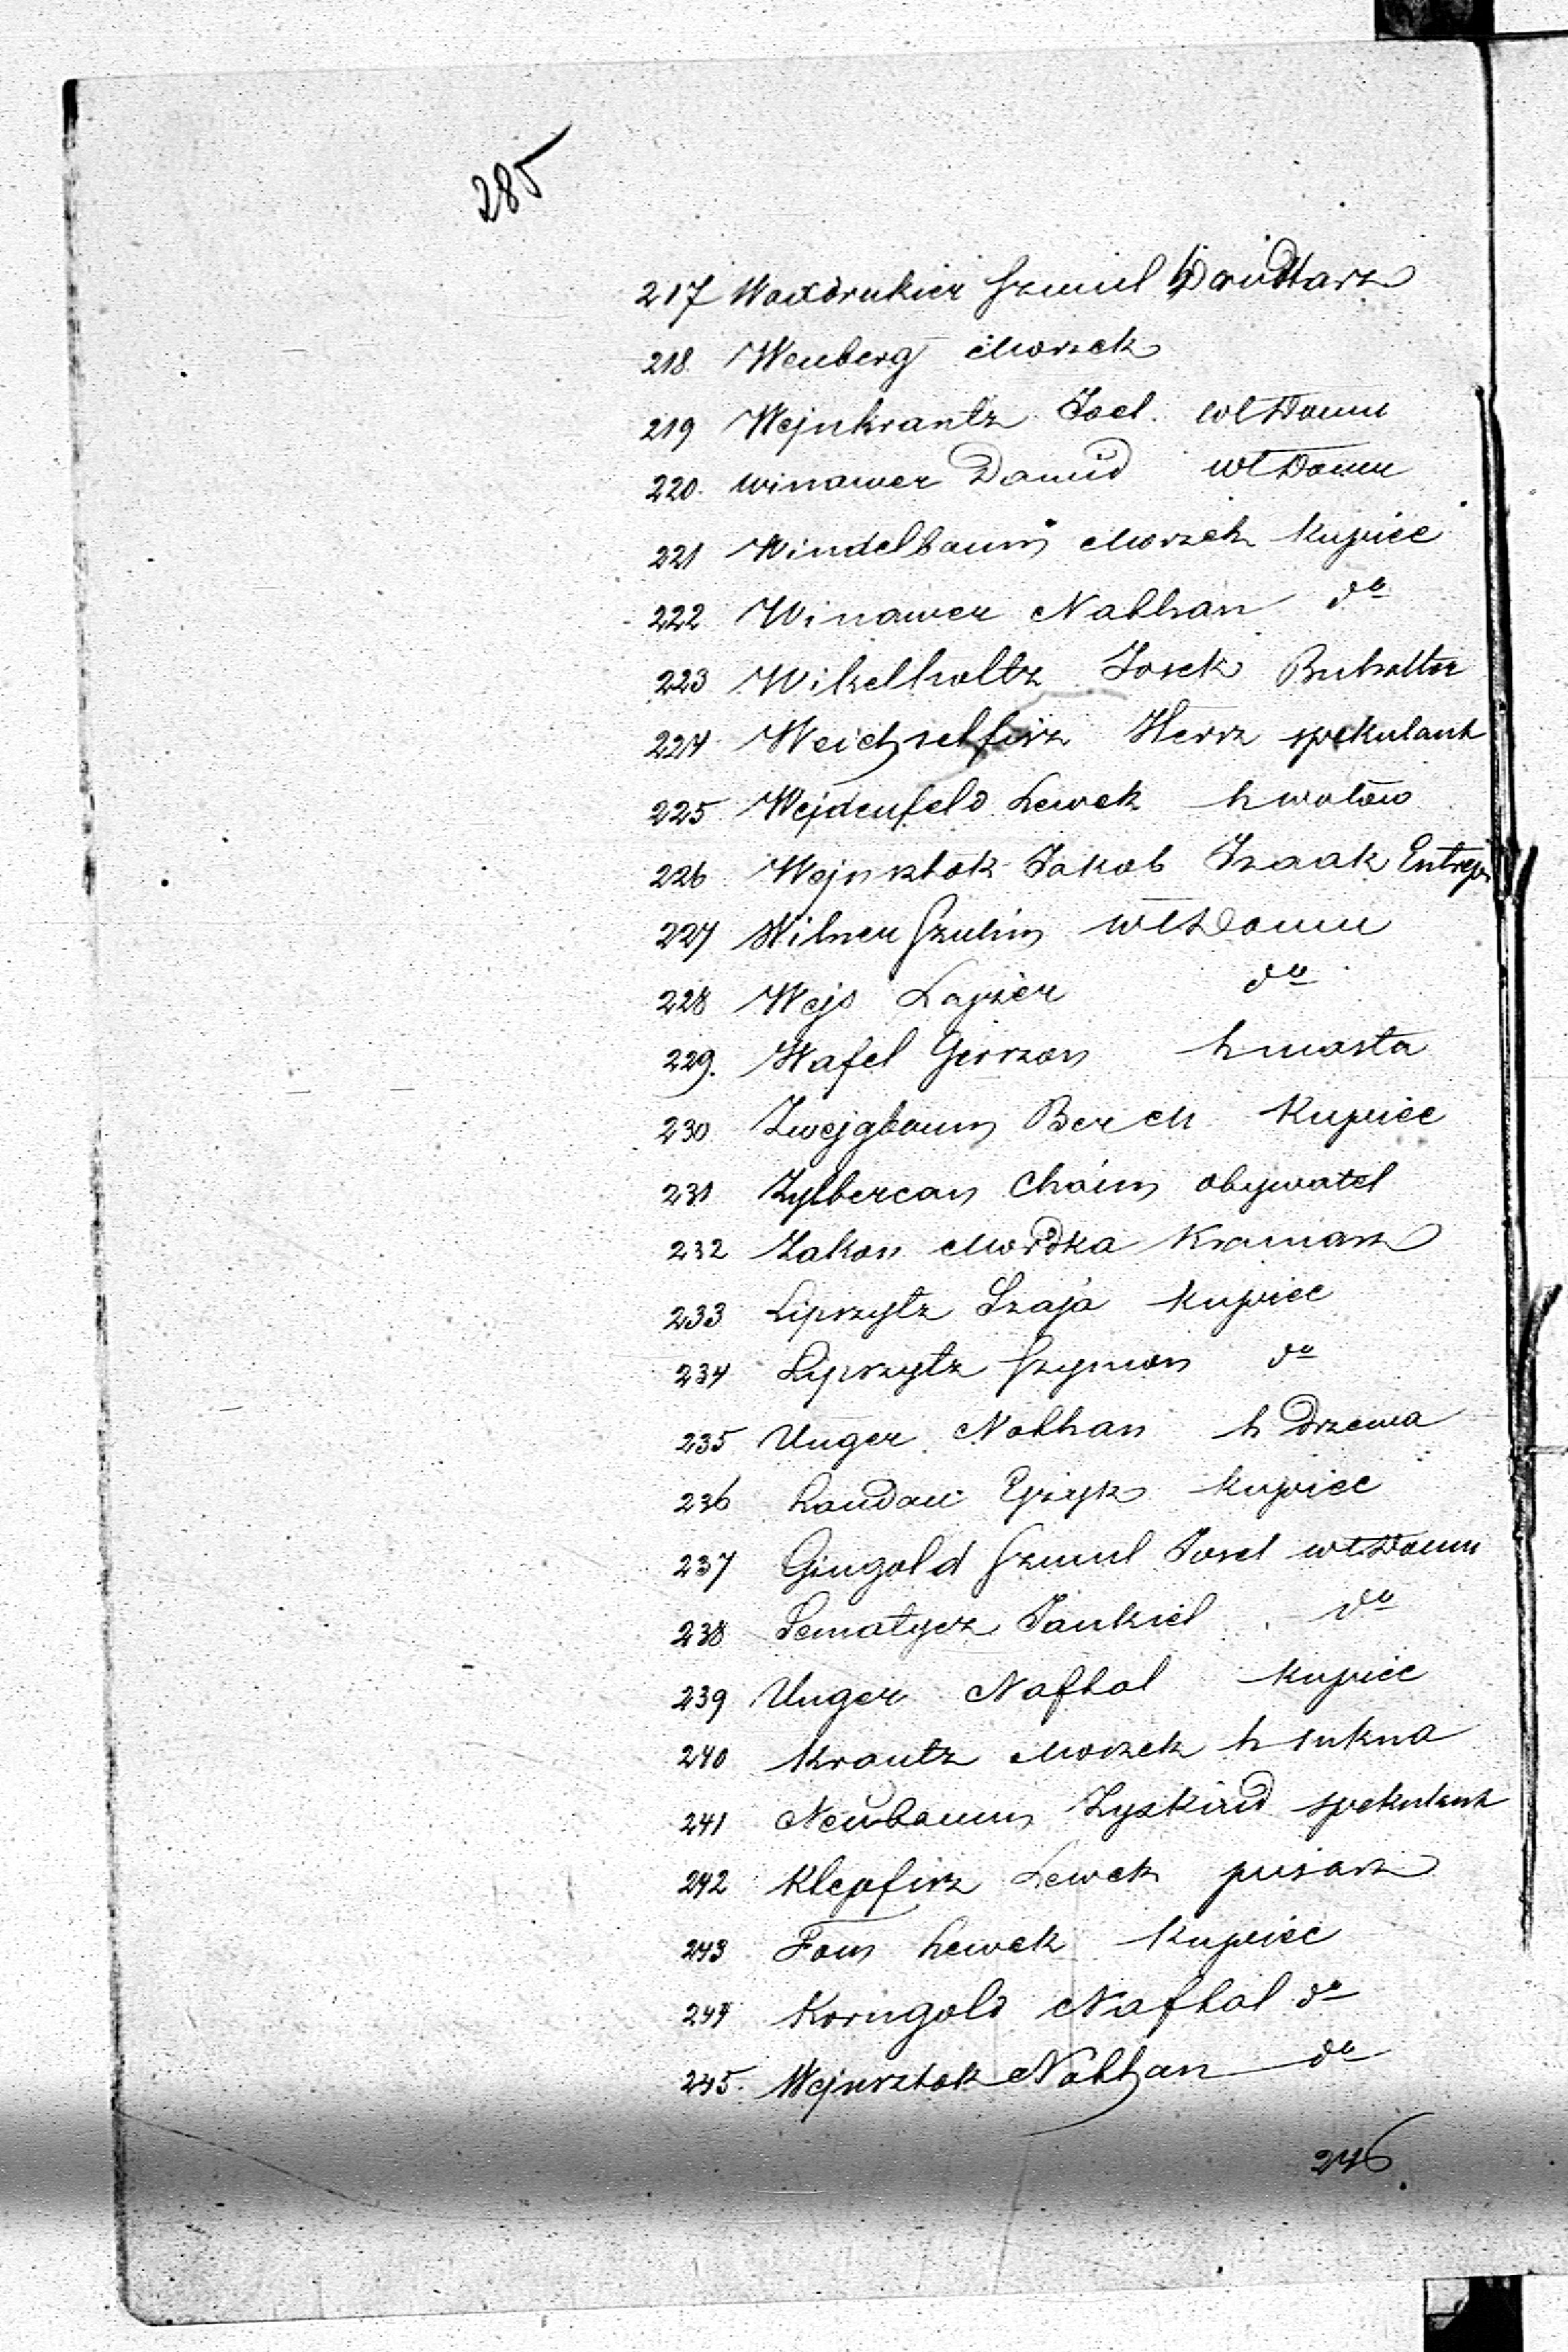 285
217 Waxdrukier Szmul
218 Wenberg Morzek
219 Wejnkrantz Joel wł Domu
220. Winawer Dawid wł Domu
221 Windelbaum Morzek Kupiec
222 Winawer Nathan do
223 Wikelholtz Josek Buhalter
224 Weichselfisz Hersz spekulant
225 Wejdenfeld Lewek h wołów
226 Wejnsztok Jakob Izaak Entrepr
227 Wilner Szulim wł Domu
228 Wejs Lajzer do
229. Wafel Gerszon h masła
230 Zwejgbaum Berek Kupiec
231 Zylbercan Chaim obywatel
232 Zakon Mordka Kramarz
233 Lipszytz Szaja Kupiec
234 Lipszytz Szymon do
235 Unger Nathan h Drzewa
236 Landau Ejzyk Kupiec
237 Gingold Szmul Josel wł Domu
238 Sematycz Jankiel do
239 Unger Naftal Kupiec
240 Krantz Moszek h sukna
241 Neubaum Zyskind spekulant
242 Klepfisz Lewek pisarz
243 Fam Lewek Kupiec
244 Korngold Naftal do
245. Wejnsztok Nathan do
246.